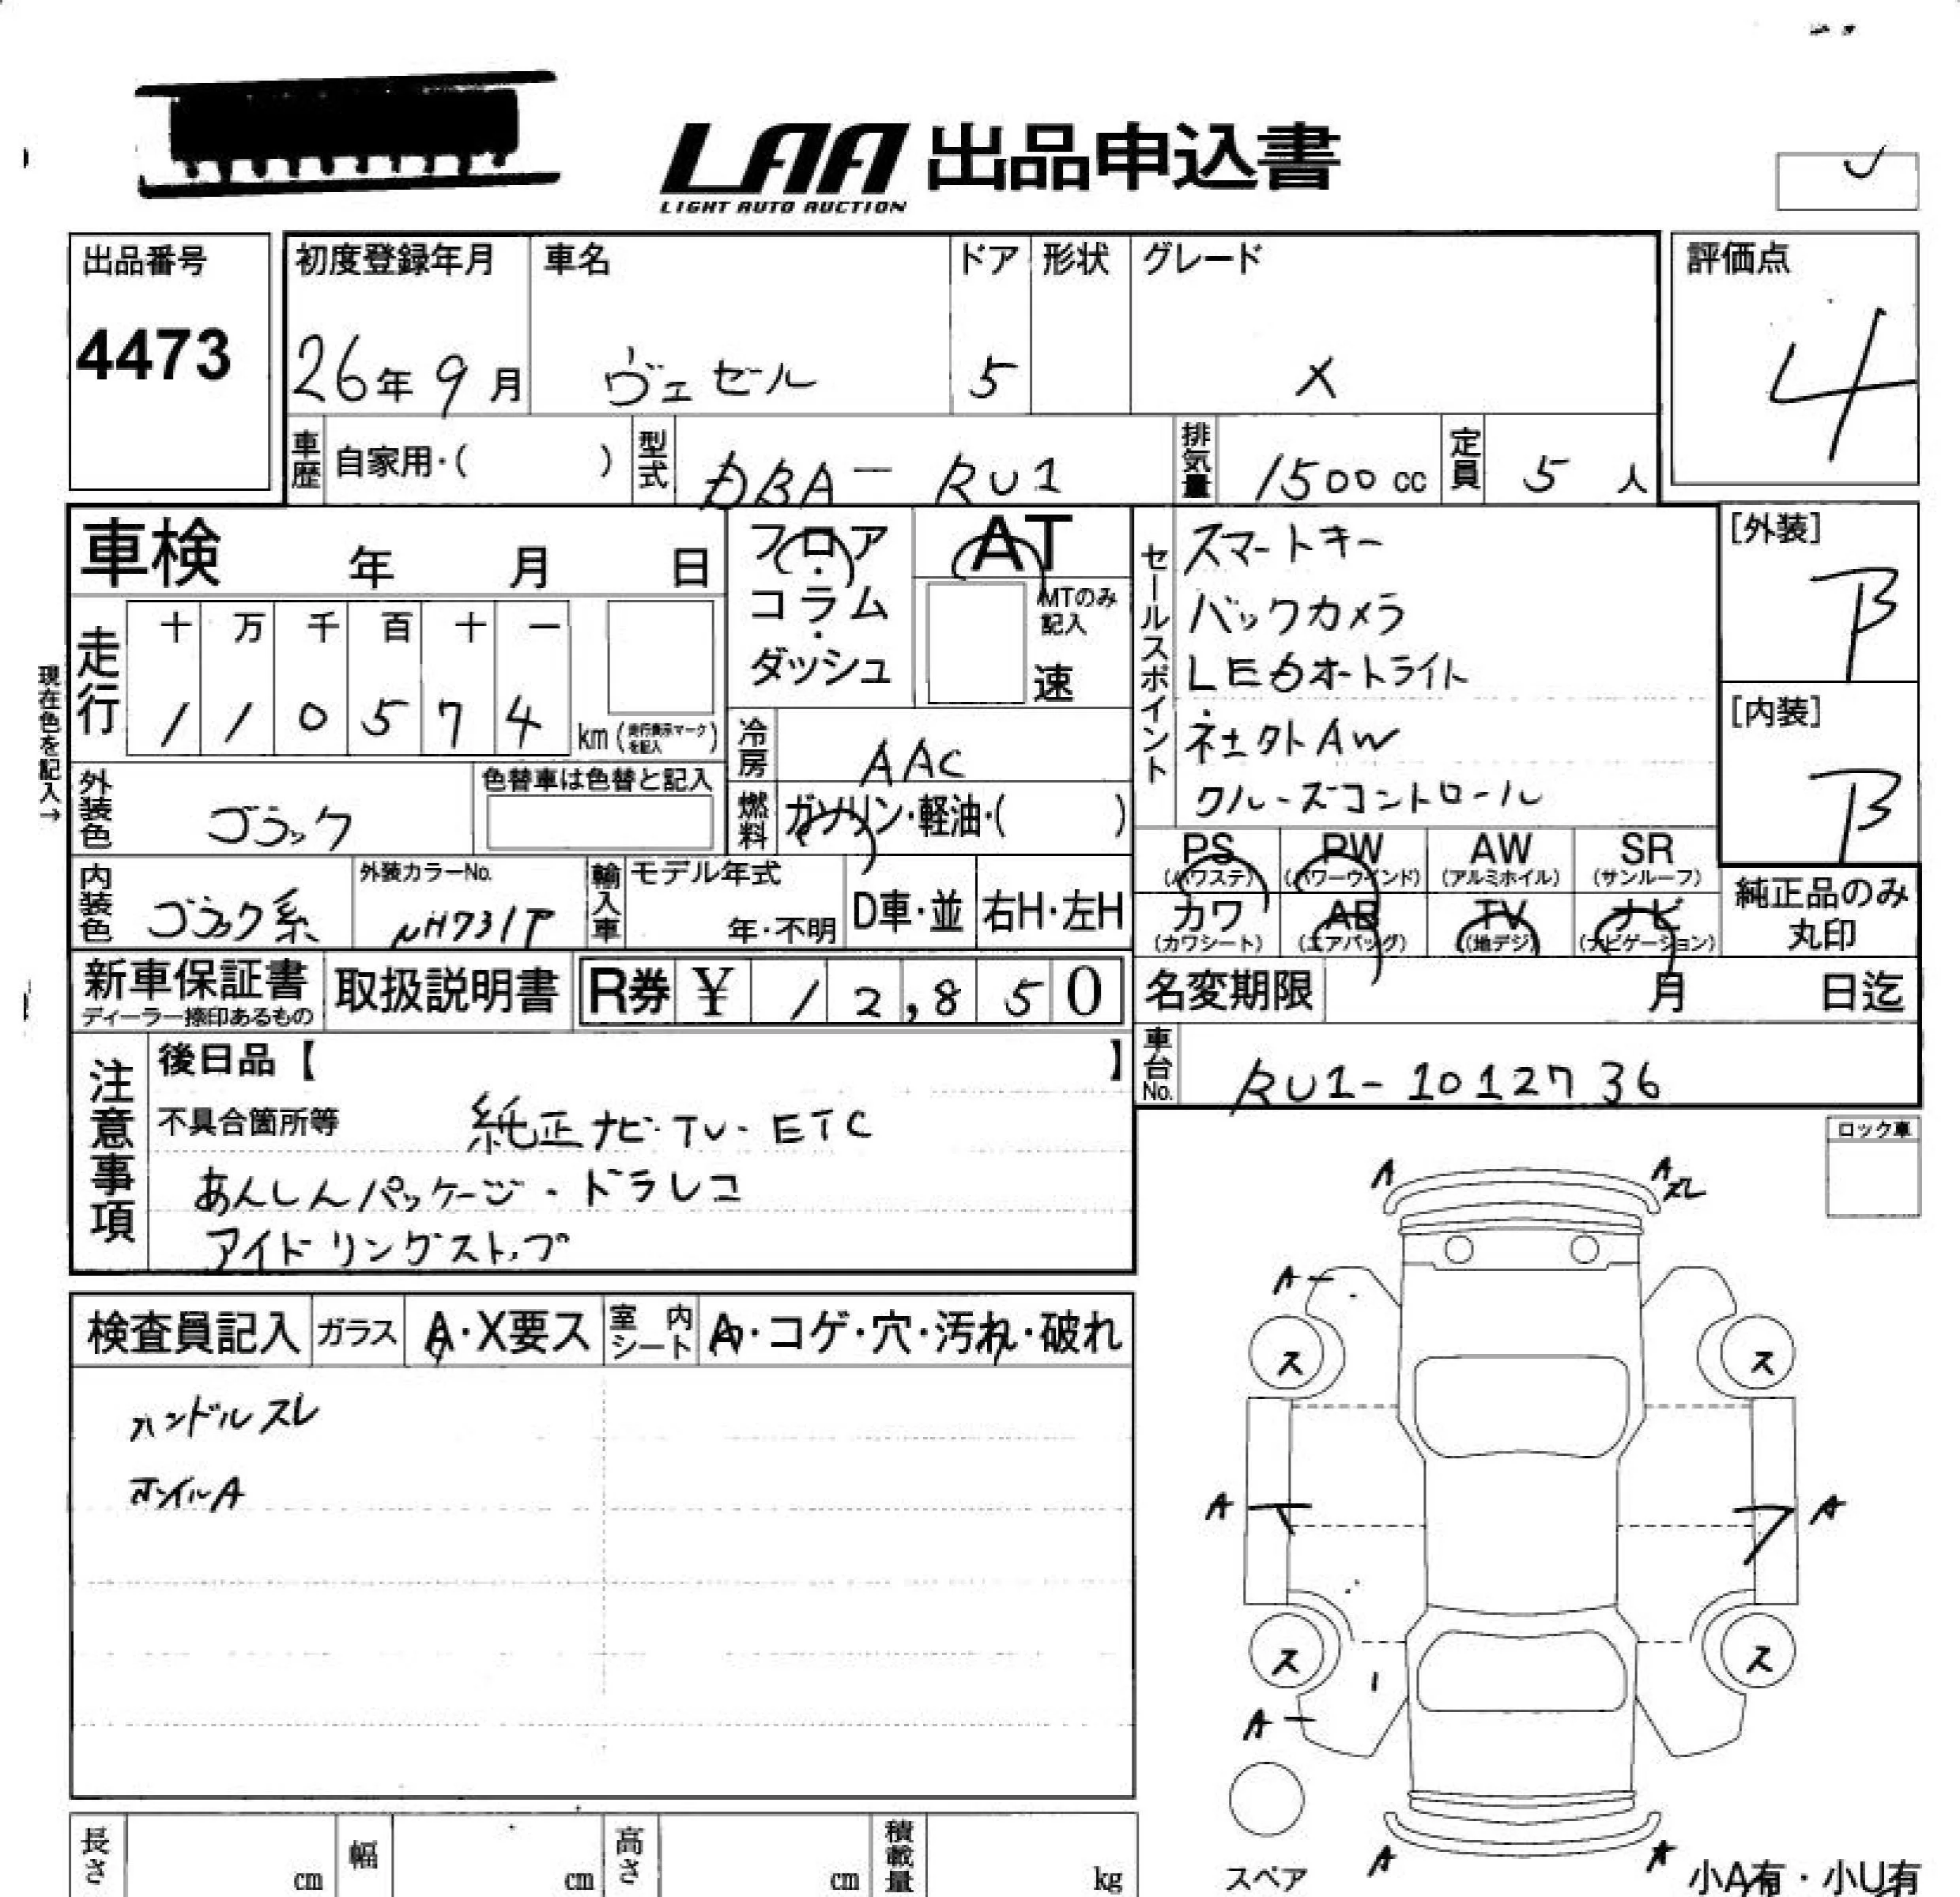 LAA 出品申込書
LIGHT AUTO AUCTION
出品番号
4473
初度登録年月
26年9月
車名
ヴェゼル
ドア
5
形状
グレード
X
評価点
4
車歴
自家用・( )
型式
DBA-RU1
排気量
1500cc
定員
5人
車検 年 月 日
フロア・コラム・ダッシュ
AT
MTのみ記入
速
セールスポイント
スマートキー
バックカメラ
LEDオートライト
社外AW
クルーズコントロール
[外装]
B
[内装]
B
現在色を記入→
走行
十 万 千 百 十 一
1 1 0 5 7 4
km(走行表示マークを記入)
冷房
AAC
外装色
ブラック
色替車は色替と記入
燃料
ガソリン・軽油・( )
PS (パワステ)
PW (パワーウインド)
AW (アルミホイル)
SR (サンルーフ)
内装色
ブラック系
外装カラーNo.
NH731P
輸入車
モデル年式
年・不明
D車・並
右H・左H
カワ (カワシート)
AB (エアバッグ)
TV (地デジ)
ナビ (ナビゲーション)
純正品のみ丸印
新車保証書
ディーラー捺印あるもの
取扱説明書
R券 ¥ 12,850
名変期限 月 日迄
車台No.
RU1-1012736
注意事項
後日品【 】
不具合箇所等
純正ナビ・TV・ETC
あんしんパッケージ・ドラレコ
アイドリングストップ
ロック車
検査員記入
ガラス
A・X要ス
室内シート
A・コゲ・穴・汚れ・破れ
ハンドルスレ
ホイルA
A
A スレ
A
ス ス
A A
ス ス
A
A A
スペア
小A有・小U有
長さ cm
幅 cm
高さ cm
積載量 kg